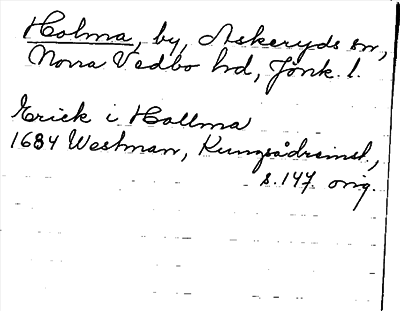 Holma, by, Askeryds sn,
Norra Vedbo hd, Jönk. l.
Erick i Hollma
1684 Westman, Kungsådreinst,
s. 147 orig.